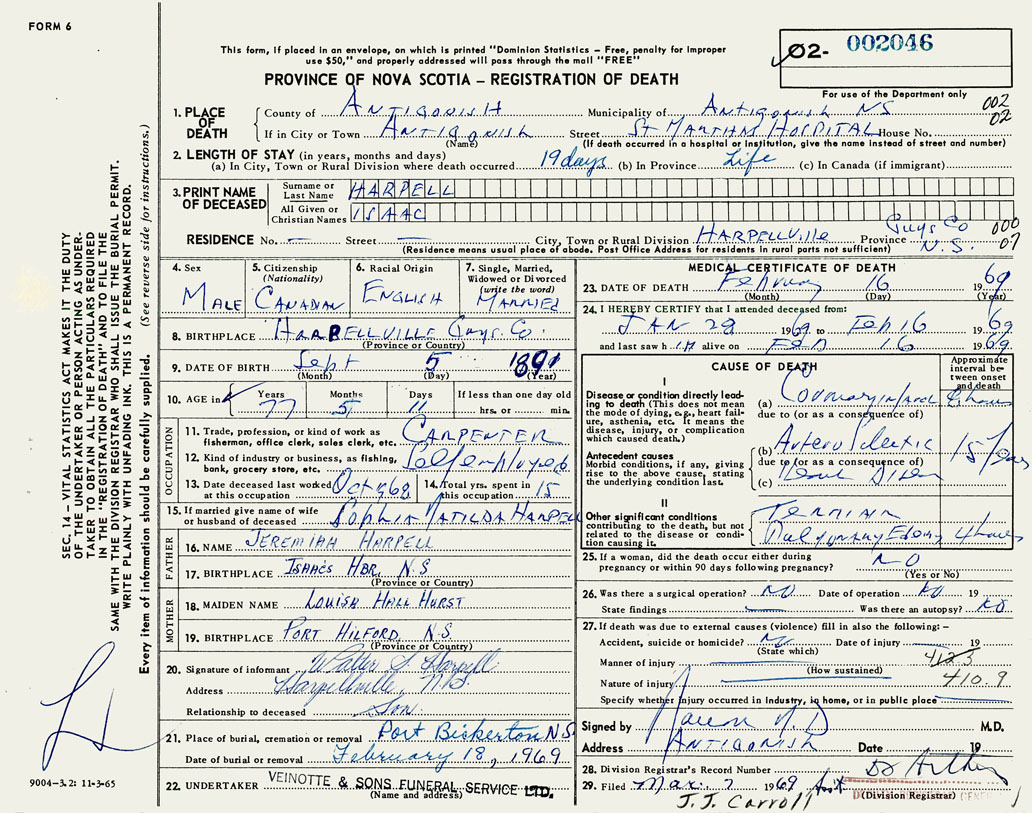 FORM 6
This form, if placed in an envelope, on which is printed "Dominion Statistics – Free, penalty for improper
use $50," and properly addressed will pass through the mail "FREE"
PROVINCE OF NOVA SCOTIA – REGISTRATION OF DEATH
02- 002046
For use of the Department only
002
02
1. PLACE OF DEATH
County of ANTIGONISH Municipality of ANTIGONISH NS
If in City or Town ANTIGONISH Street ST MARTHAS HOSPITAL House No.
(Name) (If death occurred in a hospital or institution, give the name instead of street and number)
2. LENGTH OF STAY (in years, months and days)
(a) In City, Town or Rural Division where death occurred 19 days (b) In Province Life (c) In Canada (if immigrant)
3. PRINT NAME OF DECEASED
Surname or Last Name HARPELL
All Given or Christian Names ISAAC
RESIDENCE No. — Street — City, Town or Rural Division HARPELLVILLE Province Guys Co N.S.
000
07
(Residence means usual place of abode. Post Office Address for residents in rural parts not sufficient)
4. Sex
MALE
5. Citizenship (Nationality)
CANADIAN
6. Racial Origin
ENGLISH
7. Single, Married, Widowed or Divorced (write the word)
MARRIED
8. BIRTHPLACE HARPELLVILLE Guys. Co.
(Province or Country)
9. DATE OF BIRTH Sept 5 1891
(Month) (Day) (Year)
10. AGE in Years 77 Months 5 Days 11 If less than one day old hrs. or min.
OCCUPATION
11. Trade, profession, or kind of work as fisherman, office clerk, sales clerk, etc. CARPENTER
12. Kind of industry or business, as fishing, bank, grocery store, etc. Self employed
13. Date deceased last worked at this occupation Oct 68
14. Total yrs. spent in this occupation 15
15. If married give name of wife or husband of deceased SOPHIA MATILDA HARPELL
FATHER
16. NAME JEREMIAH HARPELL
17. BIRTHPLACE ISAACS HBR. N.S
(Province or Country)
MOTHER
18. MAIDEN NAME LOUISA HALL HURST
19. BIRTHPLACE PORT HILFORD N.S.
(Province or Country)
20. Signature of informant Walter S. Harpell
Address Harpellville, N.S.
Relationship to deceased Son
21. Place of burial, cremation or removal Port Bickerton NS
Date of burial or removal February 18, 1969
22. UNDERTAKER VEINOTTE & SONS FUNERAL SERVICE LTD.
(Name and address)
MEDICAL CERTIFICATE OF DEATH
23. DATE OF DEATH February 16 1969
(Month) (Day) (Year)
24. I HEREBY CERTIFY that I attended deceased from:
JAN 28 1969 to Feb 16 1969
and last saw him alive on Feb 16 1969.
CAUSE OF DEATH
Approximate interval between onset and death
I
Disease or condition directly leading to death (This does not mean the mode of dying, e.g., heart failure, asthenia, etc. It means the disease, injury, or complication which caused death.)
(a) Coronary
due to (or as a consequence of)
Antecedent causes
Morbid conditions, if any, giving rise to the above cause, stating the underlying condition last.
(b) Arterio Sclerotic 15 Years
due to (or as a consequence of)
(c)
II
Other significant conditions contributing to the death, but not related to the disease or condition causing it.
Pulmonary Edema 4 hours
25. If a woman, did the death occur either during pregnancy or within 90 days following pregnancy? NO
(Yes or No)
26. Was there a surgical operation? NO Date of operation NO 19
State findings — Was there an autopsy? NO
27. If death was due to external causes (violence) fill in also the following: –
Accident, suicide or homicide? No Date of injury 19
(State which) 4123
Manner of injury
(How sustained) 410.9
Nature of injury
Specify whether injury occurred in industry, in home, or in public place
Signed by M.D.
Address ANTIGONISH Date 19
28. Division Registrar's Record Number
29. Filed Mar. 7 1969
J.J. Carroll
(Division Registrar)
SEC. 14 – VITAL STATISTICS ACT MAKES IT THE DUTY
OF THE UNDERTAKER OR PERSON ACTING AS UNDER-
TAKER TO OBTAIN ALL THE PARTICULARS REQUIRED
IN THE "REGISTRATION OF DEATH" AND TO FILE THE
SAME WITH THE DIVISION REGISTRAR WHO SHALL ISSUE THE BURIAL PERMIT.
WRITE PLAINLY WITH UNFADING INK. THIS IS A PERMANENT RECORD.
Every item of information should be carefully supplied. (See reverse side for instructions.)
9004-3.2: 11-3-65